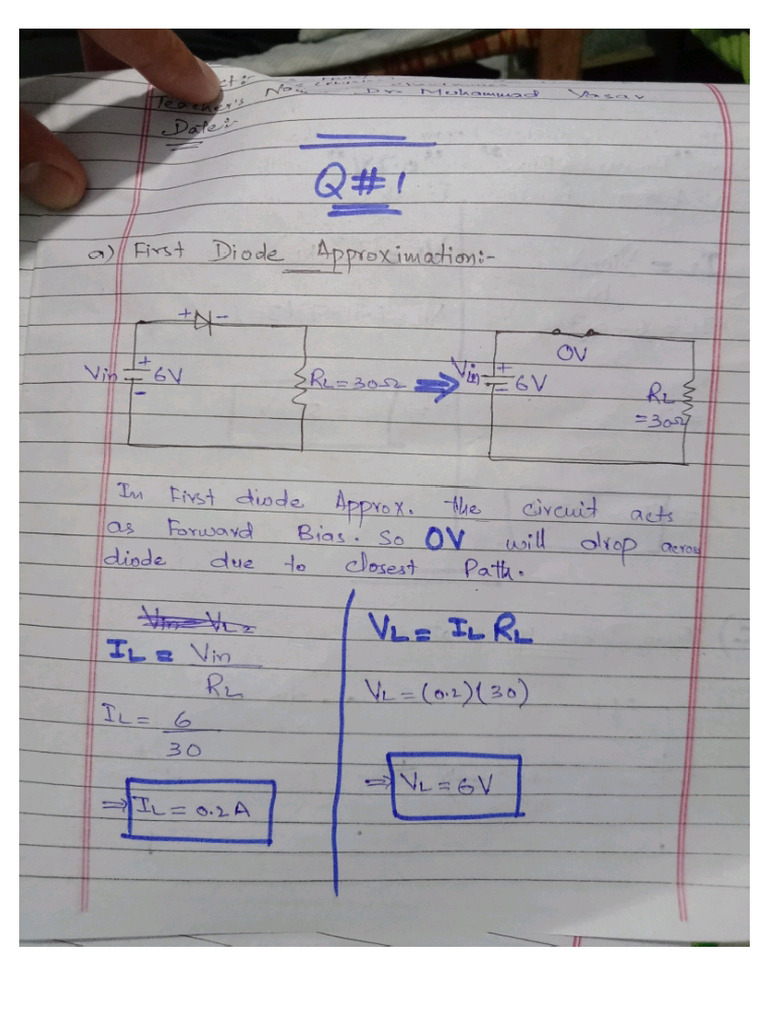 Teacher's Dr. Mohammad
Date:
Q#1
a) First Diode Approximation:-
+ -
Vin + 6V -
RL = 30Ω
⇒
0V
Vin + 6V -
RL
= 30Ω
In First diode Approx. the circuit acts
as Forward Bias. So 0V will drop across
diode due to closest Path.
IL = Vin
RL
IL = 6
30
⇒ IL = 0.2A
VL = IL RL
VL = (0.2)(30)
⇒ VL = 6V